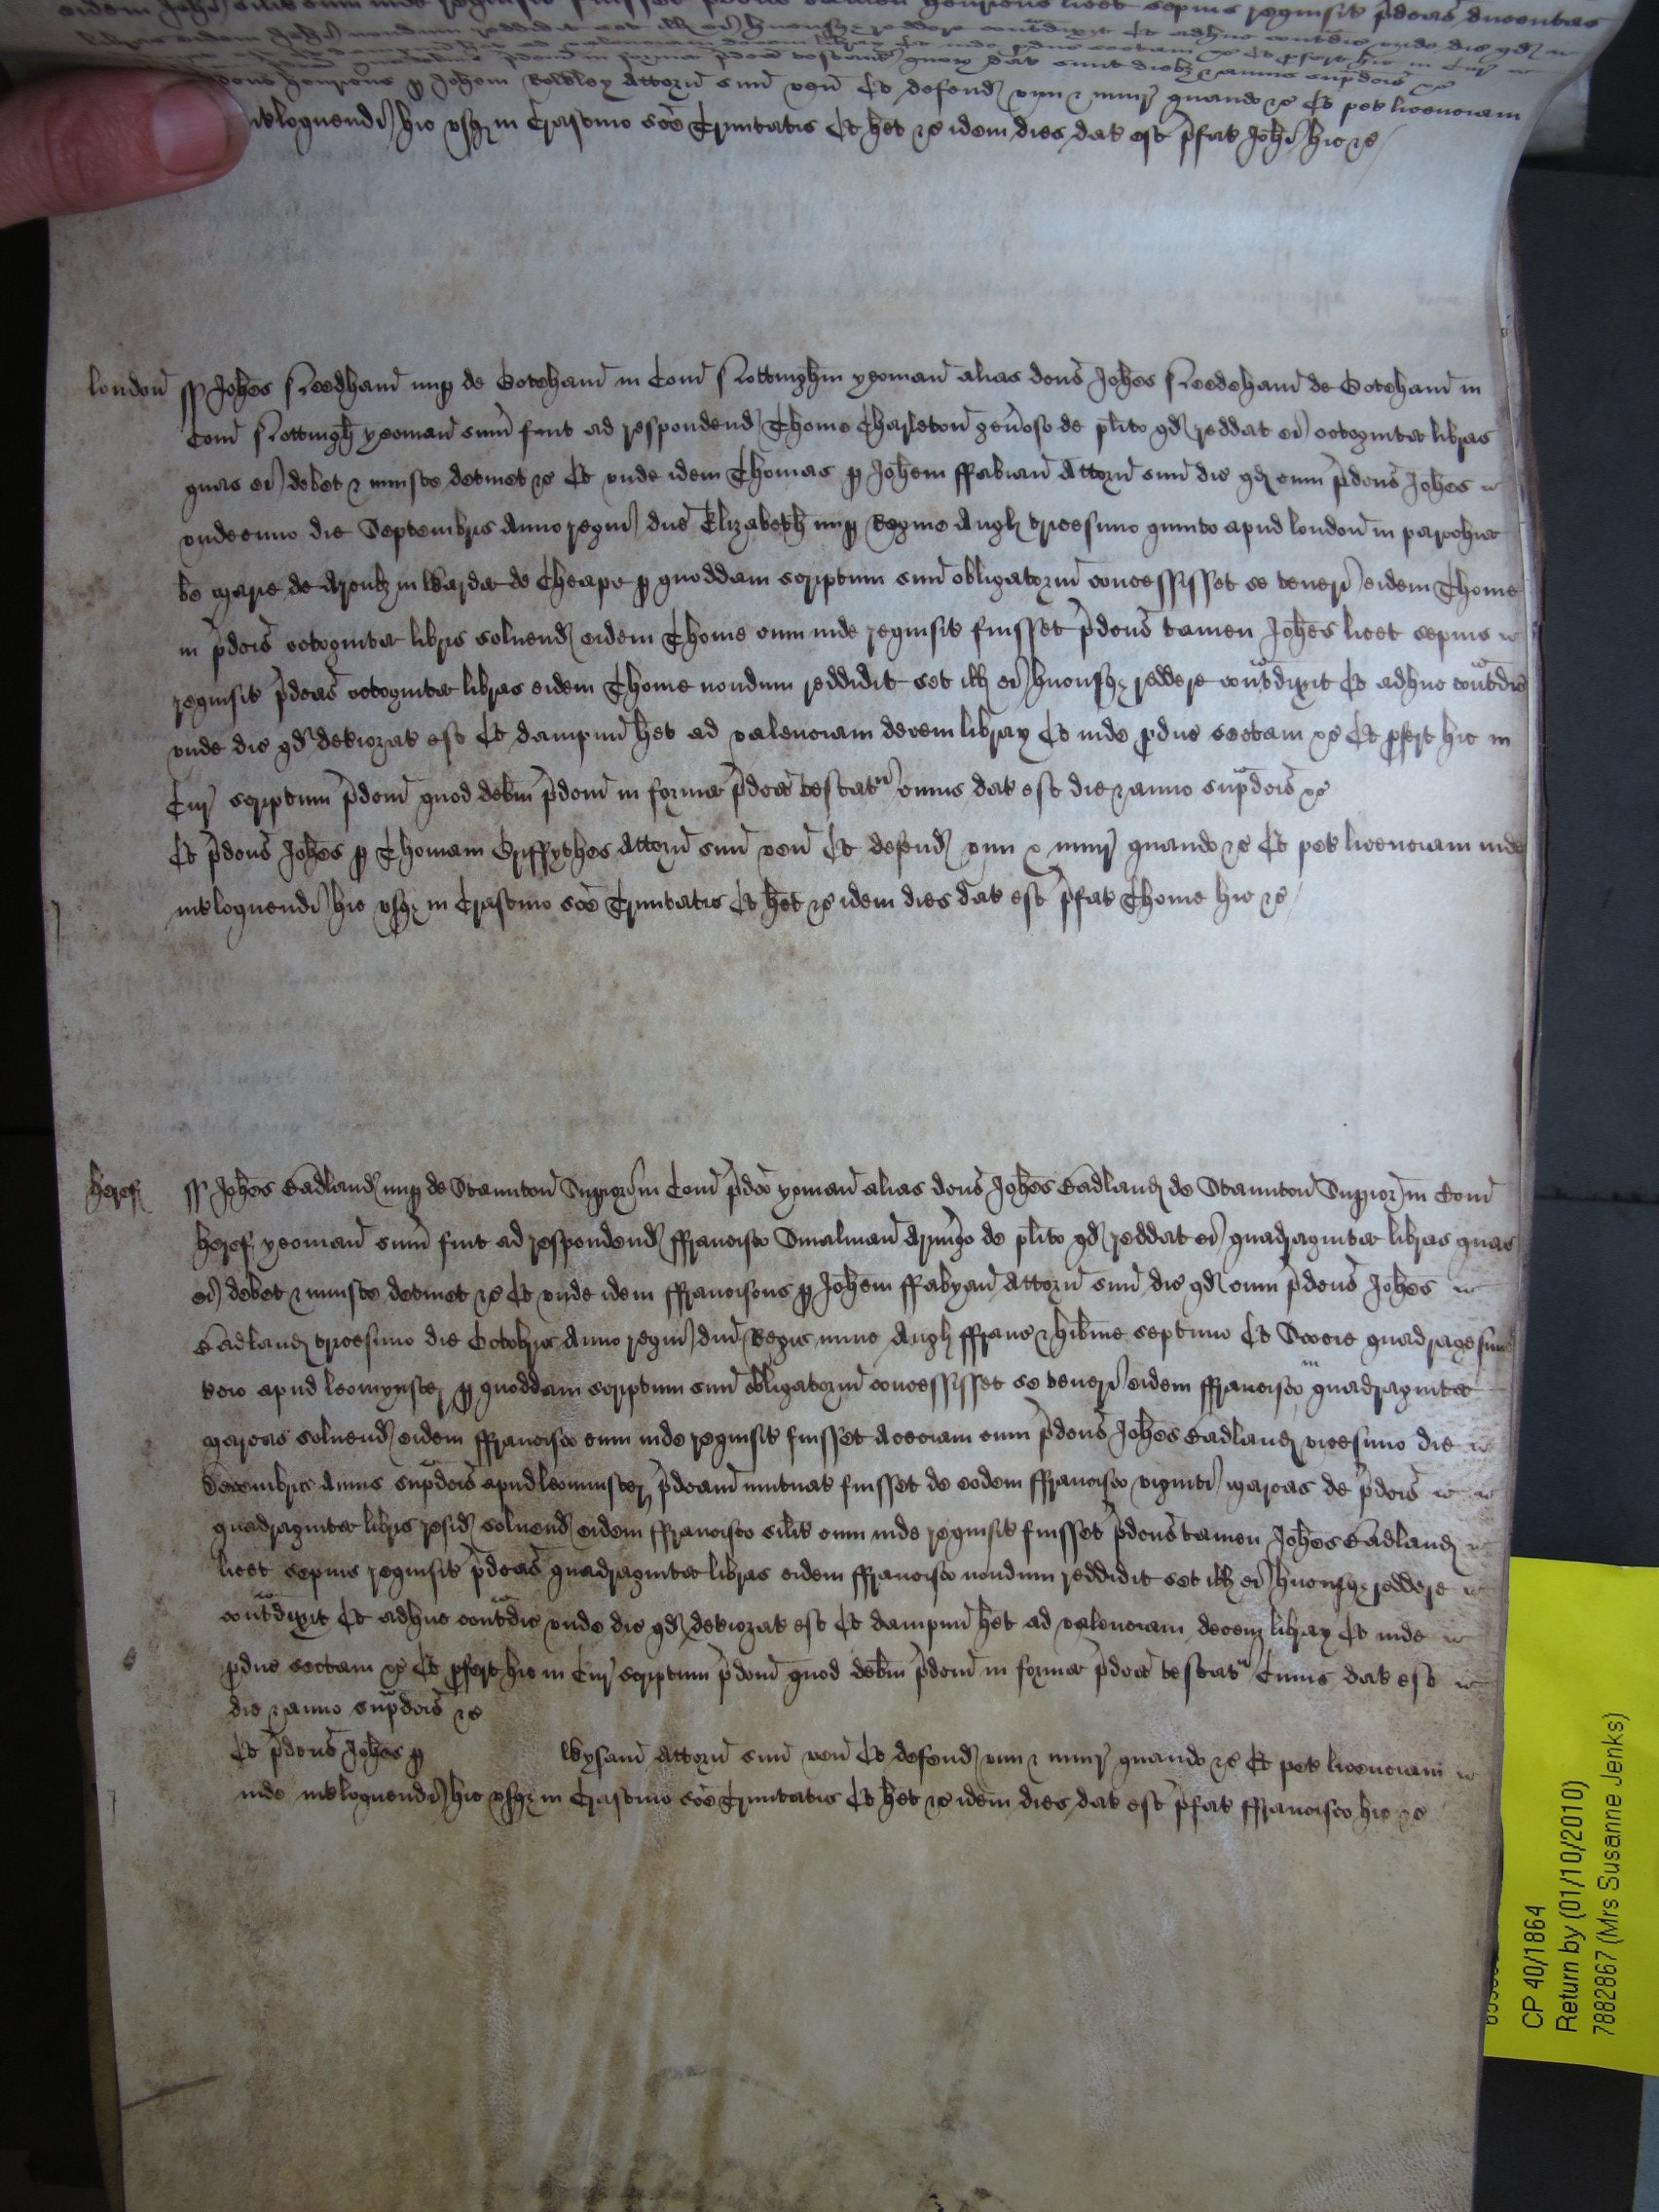 eidem Joħi silit cum inde requisit fuisset p̄dcus tamen Henricus licet sepius requisit p̄dcas ducentas
libras eidem Joħi nondum reddidit set ill ei hucusq reddere cont̄dixit Et adhuc cont̄dic unde dic qd
Henricus p Joħem Rowley Attorn̄ suu ven̄ Et defend vim & iniur quando &c Et pet licenciam
int̄loquendi hic usq in Crastino sc̄e Trinitatis Et het &c idem dies dat est p̄fat Joħi hic &c
London̄ ss Joħes Needham̄ nup de Goteham̄ in Com̄ Nottinghm̄ yeoman̄ alias dcus Joħes Needeham̄ de Goteham̄ in
Com̄ Nottingħ yeoman̄ sum̄ fuit ad respondend Thome Charleton̄ gen̄oso de pl̄ito qd reddat ei octoginta libras
quas ei debet & iniuste detinet &c Et unde idem Thomas p Joħem ffabian̄ Attorn̄ suu dic qd cum p̄dcus Joħes
undecimo die Septembris Anno regni dn̄e Elizabeth nup Regine Angl tricesimo quinto apud london̄ in parochia
be Marie de Arcubz in Warda de Cheape p quoddam scriptum suu obligatoriu concessisset se teneri eidem Thome
in p̄dcis octoginta libris soluend eidem Thome cum inde requisit fuisset p̄dcus tamen Joħes licet sepius
requisit p̄dcas octoginta libras eidem Thome nondum reddidit set ill ei hucusq reddere cont̄dixit Et adhuc cont̄dic
unde dic qd det̄iorat est Et dampnu het ad valenciam decem librar Et inde pduc sectam &c Et pfert hic in
Cur scriptum p̄dcm quod debm̄ p̄dcm in forma p̄dca testat cuius dat est die & anno sup̄dcis &c
Et p̄dcus Joħes p Thomam Gryffythes Attorn̄ suu ven̄ Et defend vim & iniur quando &c Et pet licenciam inde
int̄loquendi hic usq in Crastino sc̄e Trinitatis Et het &c idem dies dat est p̄fat Thome hic &c
Heref ss Joħes Badland nup de Staunton̄ Supior in Com̄ p̄dco yoman̄ alias dcus Joħes Badland de Staunton̄ Supior in Com̄
Heref yeoman̄ sum̄ fuit ad respondend ffrancisco Smalman̄ Armigo de pl̄ito qd reddat ei quadraginta libras quas
ei debet & iniuste detinet &c Et unde idem ffranciscus p Joħem ffabyan̄ Attorn̄ suu dic qd cum p̄dcus Joħes
Badland tricesimo die Octobris Anno regni dn̄i Regis nunc Angl ffranc & Hib̄nie septimo Et Scocie quadragesimo
t̄cio apud leomynster p quoddam scriptum suu obligatoriu concessisset se teneri eidem ffrancisco in quadraginta
marcas soluend eidem ffrancisco cum inde requisit fuisset Aceciam cum p̄dcus Joħes Badland vicesimo die
Decembris Annis sup̄dcis apud leominster p̄dcam mutuat fuisset de eodem ffrancisco viginti marcas de p̄dcis
quadraginta libris resid soluend eidem ffrancisco silit cum inde requisit fuisset p̄dcus tamen Joħes Badland
licet sepius requisit p̄dcas quadraginta libras eidem ffrancisco nondum reddidit set ill ei hucusq reddere
cont̄dixit Et adhuc cont̄dic unde dic qd det̄iorat est Et dampnu het ad valenciam decem librar Et inde
pduc sectam &c Et pfert hic in Cur scriptum p̄dcm quod debm̄ p̄dcm in forma p̄dca testat Cuius dat est
die & anno sup̄dcis &c
Et p̄dcus Joħes p Wysam̄ Attorn̄ suu ven̄ Et defend vim & iniur quando &c Et pet licenciam
inde int̄loquendi hic usq in Crastino sc̄e Trinitatis Et het &c idem dies dat est p̄fat ffrancisco hic &c
CP 40/1864
Return by (01/10/2010)
7882867 (Mrs Susanne Jenks)